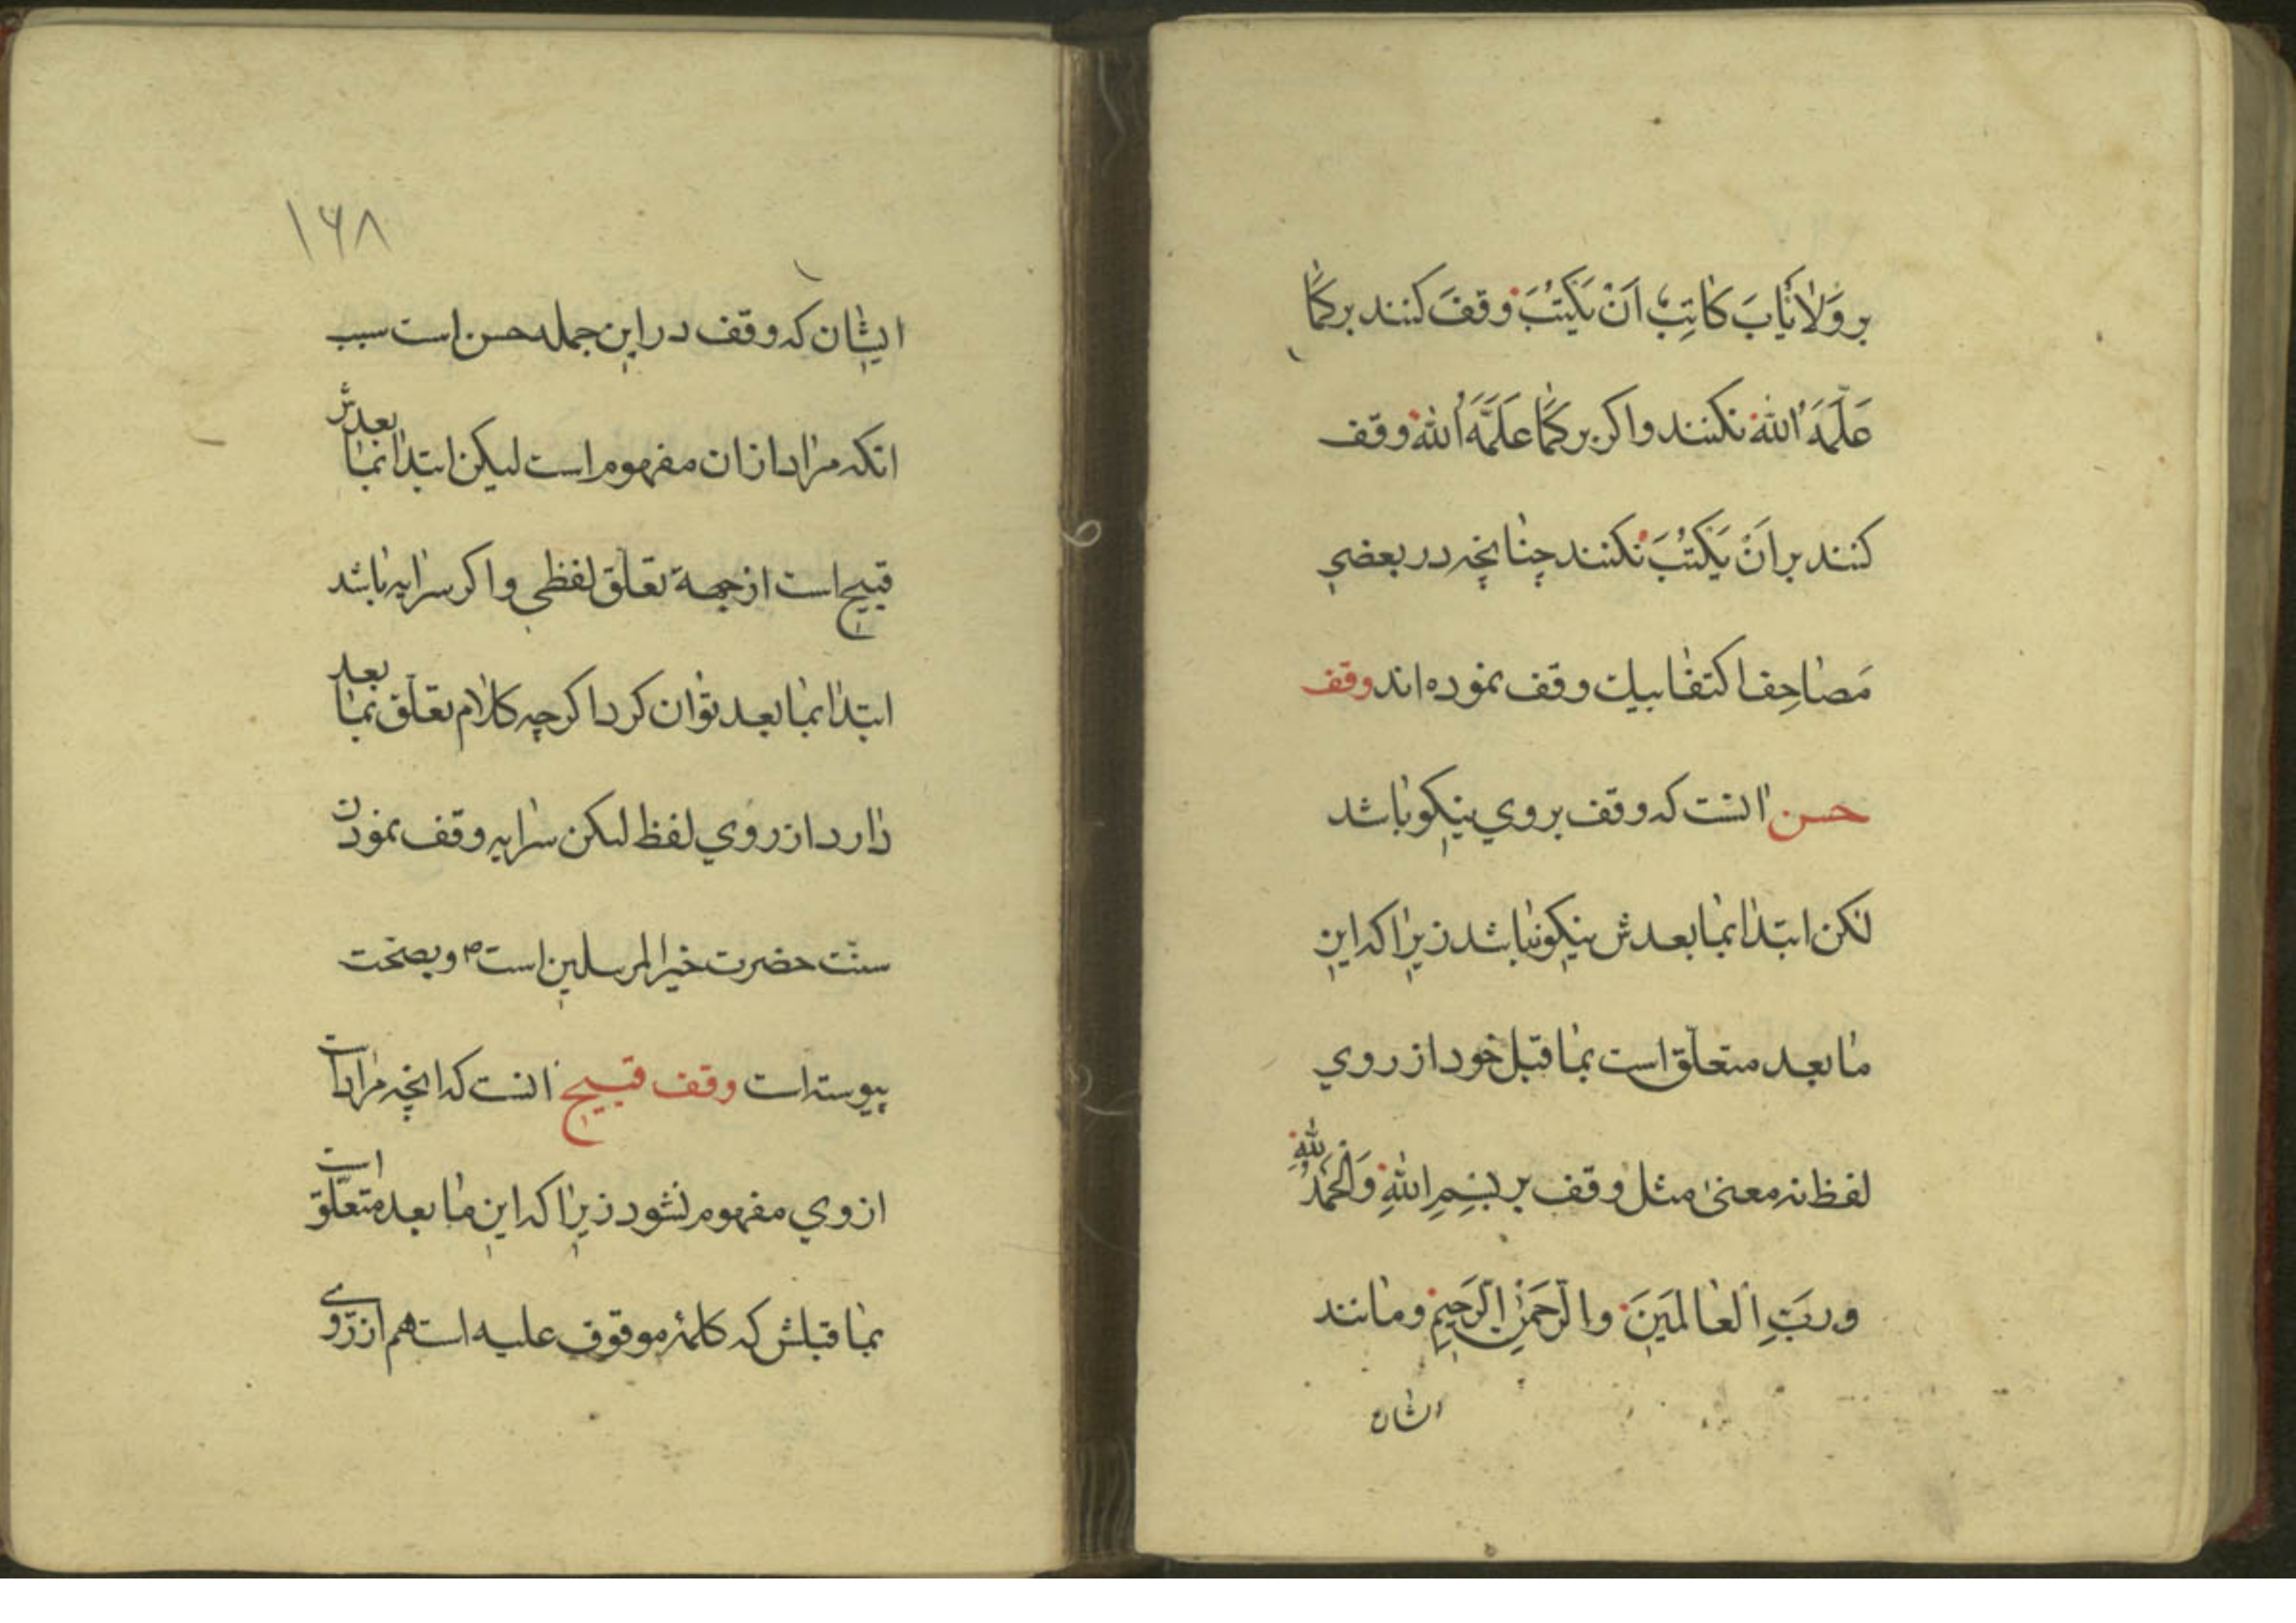 بر وَلَا يَابَ كَاتِبٌ اَنْ يَكْتُبَ وقف كنند بر كَمَا
عَلَّمَهُ اللهُ نكنند واكر بر كَمَا عَلَّمَهُ اللهُ وقف
كنند بر اَنْ يَكْتُبَ نكنند چنانچه در بعضی
مَصاحِف اكتفا بيك وقف نموده اند وقف
حسن انست كه وقف بروي نيكو باشد
لكن ابتدا بما بعدش نيكو نباشد زيرا كه اين
ما بعد متعلّق است بما قبل خود از روي
لفظ نه معنى مثل وقف بر بِسْمِ اللهِ وَالْحَمْدُ لِلّهِ
ورَبِّ الْعَالَمِينَ والرَّحْمَنِ الرَّحِيمِ ومانند
ایشان
۱۶۸
ایشان كه وقف در اين جمله حسن است سبب
انكه مراد ازان مفهوم است ليكن ابتدا بما بعدش
قبيح است از جهة تعلّق لفظی واكر سرايه باشد
ابتدا بما بعد توان كرد اكرچه كلام تعلّق بما بعد
دارد از روي لفظ لكن سرايه وقف نمودن
سنّت حضرت خير المرسلين است ص وبصحّت
پيوسته است وقف قبيح انست كه انچه مراد است
از وي مفهوم نشود زيرا كه اين ما بعد متعلّق است
بما قبلش كه كلمۀ موقوف عليه است هم از روی